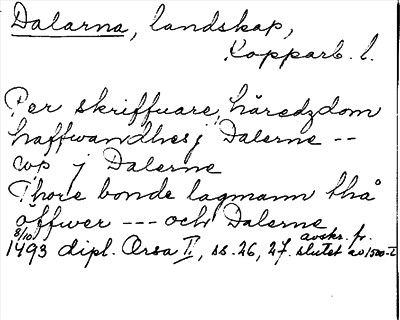 Dalarna, landskap,
Kopparb. l.
Per skriffuare, häredzdom
haffwandhes j Dalerne --
wp j Dalerne
Thore bonde lagmann thå
offwer --- och Dalerne
8/10 avskr. fr.
1493 dipl. Orsa II, ss. 26, 27. slutet av 1500-t